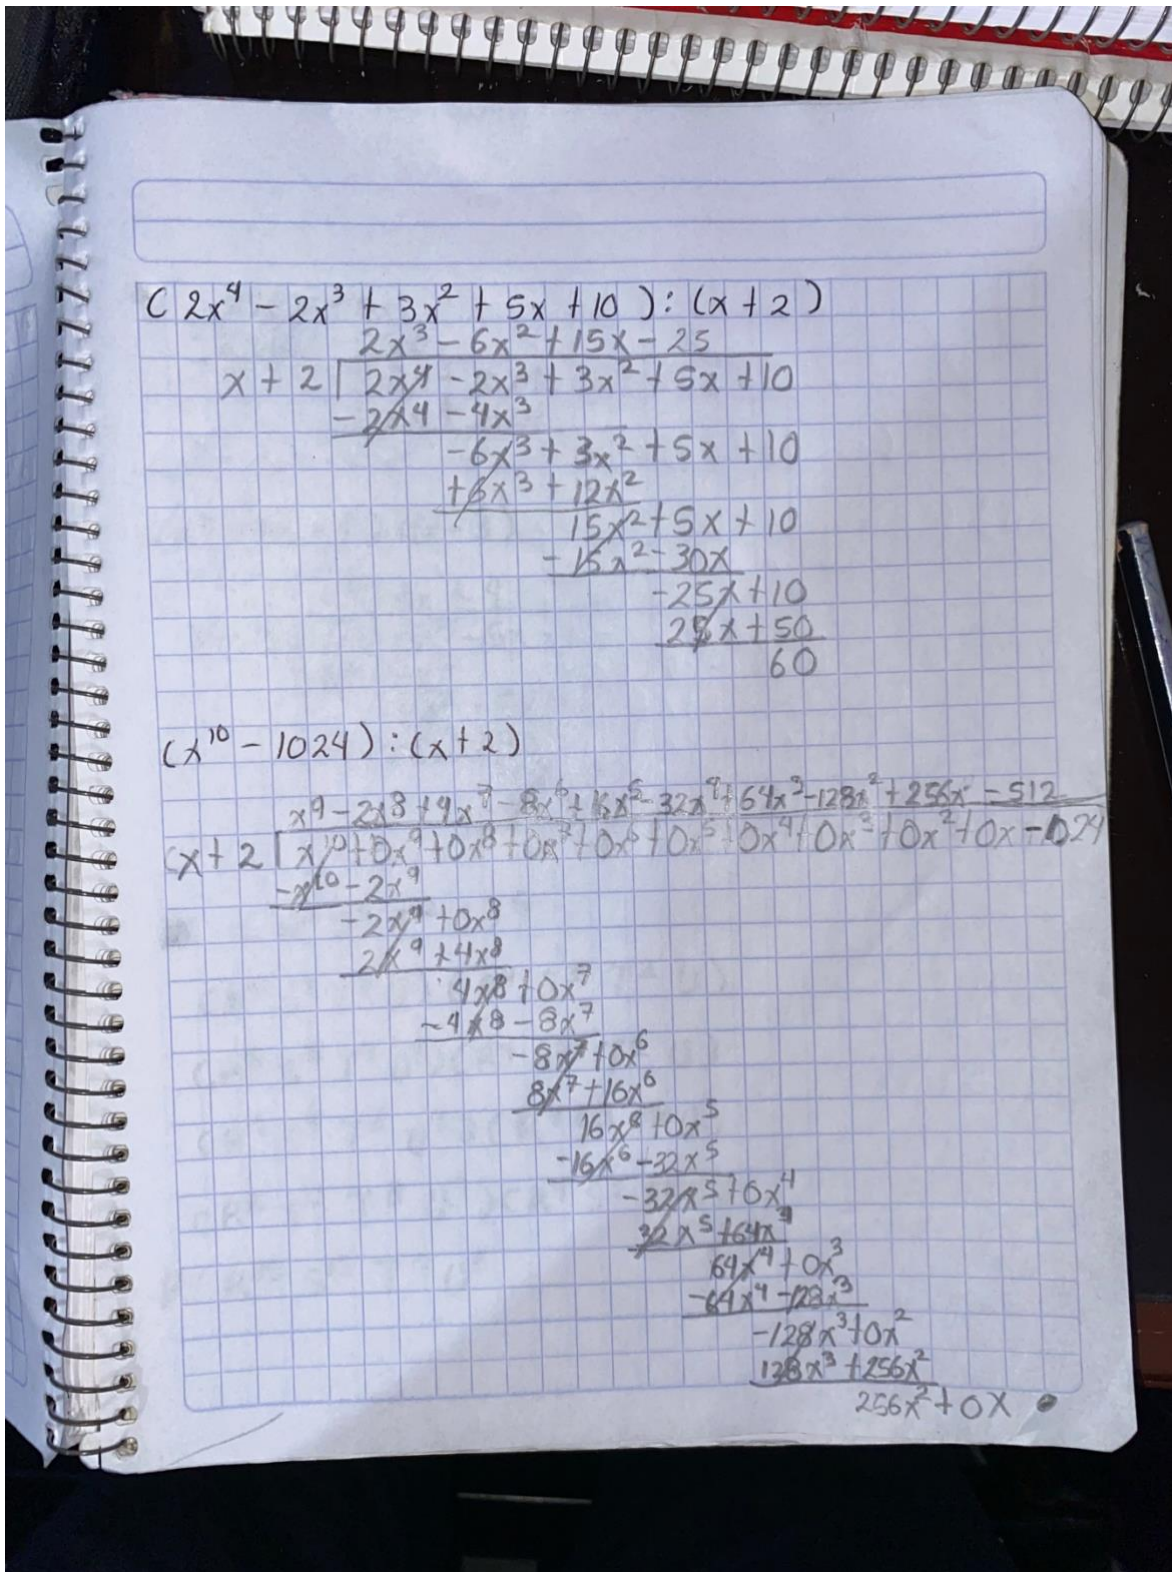 (2x⁴ - 2x³ + 3x² + 5x + 10) : (x + 2)
2x³ - 6x² + 15x - 25
x + 2 | 2x⁴ - 2x³ + 3x² + 5x + 10
- 2x⁴ - 4x³
-6x³ + 3x² + 5x + 10
+6x³ + 12x²
15x² + 5x + 10
- 15x² - 30x
-25x + 10
25x + 50
60
(x¹⁰ - 1024) : (x + 2)
x⁹ - 2x⁸ + 4x⁷ - 8x⁶ + 16x⁵ - 32x⁴ + 64x³ - 128x² + 256x - 512
x + 2 | x¹⁰ + 0x⁹ + 0x⁸ + 0x⁷ + 0x⁶ + 0x⁵ + 0x⁴ + 0x³ + 0x² + 0x - 1024
-x¹⁰ - 2x⁹
-2x⁹ + 0x⁸
2x⁹ + 4x⁸
4x⁸ + 0x⁷
-4x⁸ - 8x⁷
-8x⁷ + 0x⁶
8x⁷ + 16x⁶
16x⁶ + 0x⁵
-16x⁶ - 32x⁵
-32x⁵ + 0x⁴
32x⁵ + 64x⁴
64x⁴ + 0x³
-64x⁴ - 128x³
-128x³ + 0x²
128x³ + 256x²
256x² + 0x